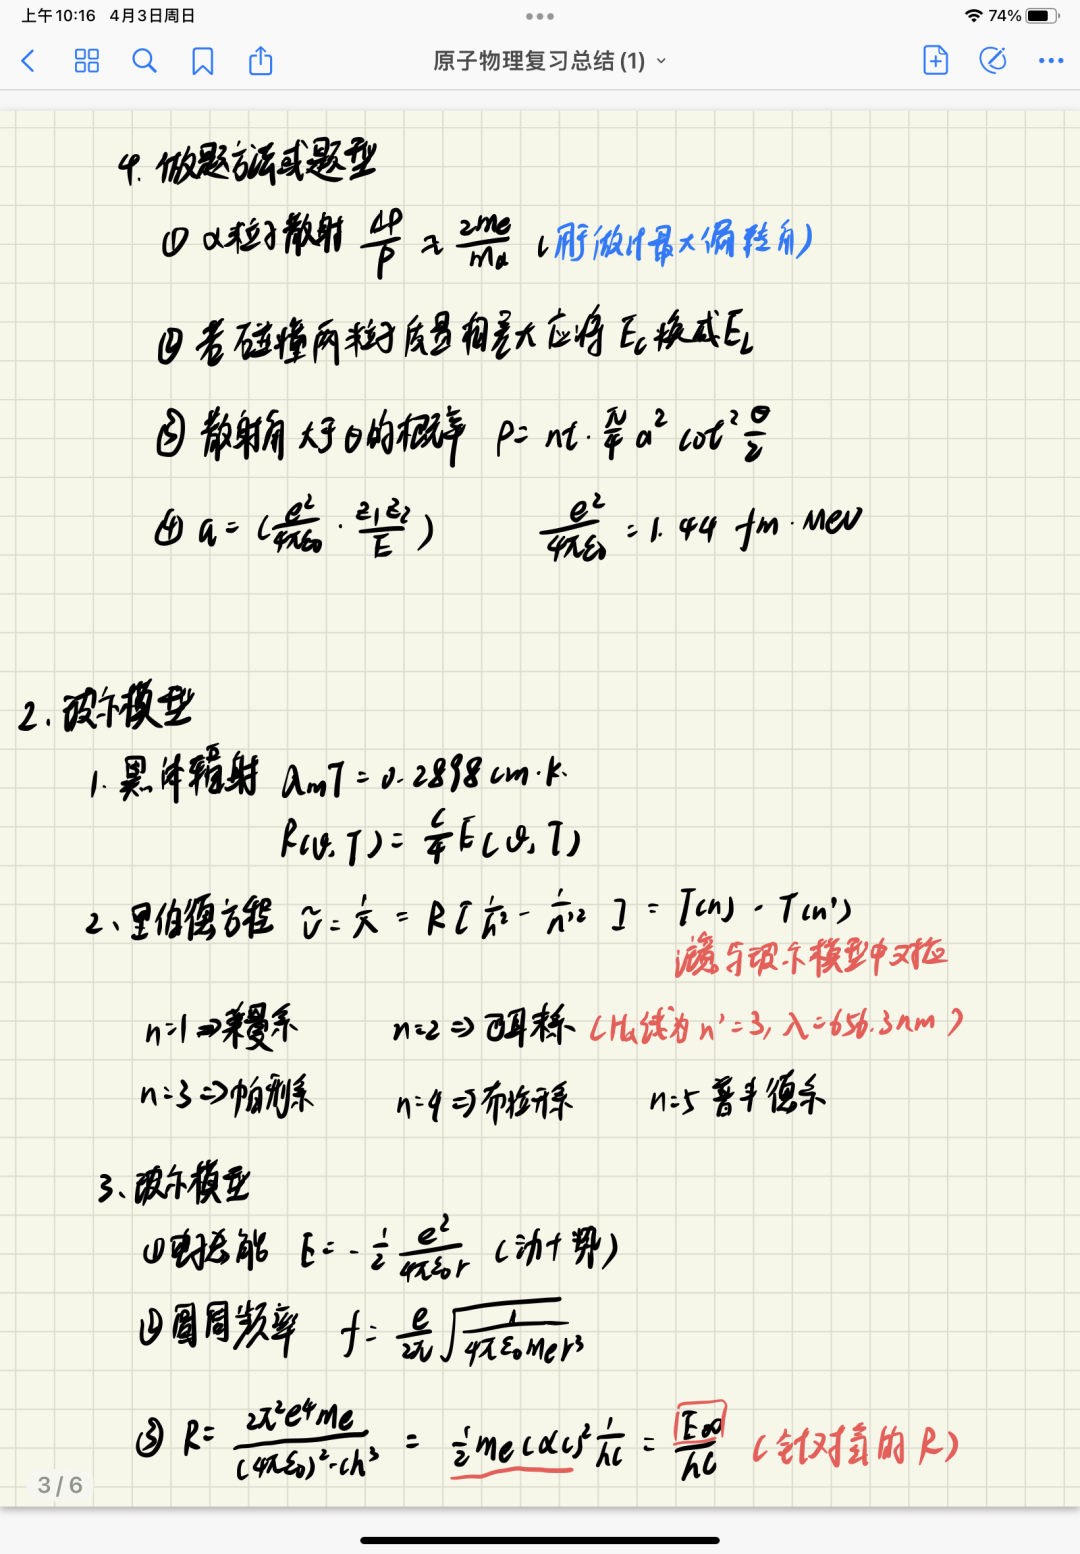 上午10:16 4月3日周日
74%
原子物理复习总结 (1)
4. 做题方法或题型
① α粒子散射 ΔP/P ≈ 2me/mα (用于做时最大偏转角)
② 若碰撞两粒子质量相差大 应将 Ec 换成 EL
③ 散射角大于θ的概率 P = nt · π/4 a² cot² θ/2
④ a = (e²/4πε0 · Z1Z2/E) e²/4πε0 = 1.44 fm · MeV
2. 玻尔模型
1. 黑体辐射 λmT = 0.2898 cm·K.
R(ν,T) = c/4 E(ν,T)
2、里伯德方程 ν̃ = 1/λ = R [1/n² - 1/n'²] = T(n) - T(n')
注意与玻尔模型中对应
n=1 ⇒ 莱曼系 n=2 ⇒ 巴耳末系 (Hα线为 n'=3, λ=656.3nm)
n=3 ⇒ 帕邢系 n=4 ⇒ 布拉开系 n=5 普丰德系
3、玻尔模型
① 电子总能 E = - 1/2 e²/4πε0r (动+势)
② 圆周频率 f = e/2π √(1/4πε0mer³)
③ R = 2π²e⁴me/(4πε0)²·ch³ = 1/2 me(αc)² 1/hc = E∞/hc (针对氢的 R)
3 / 6